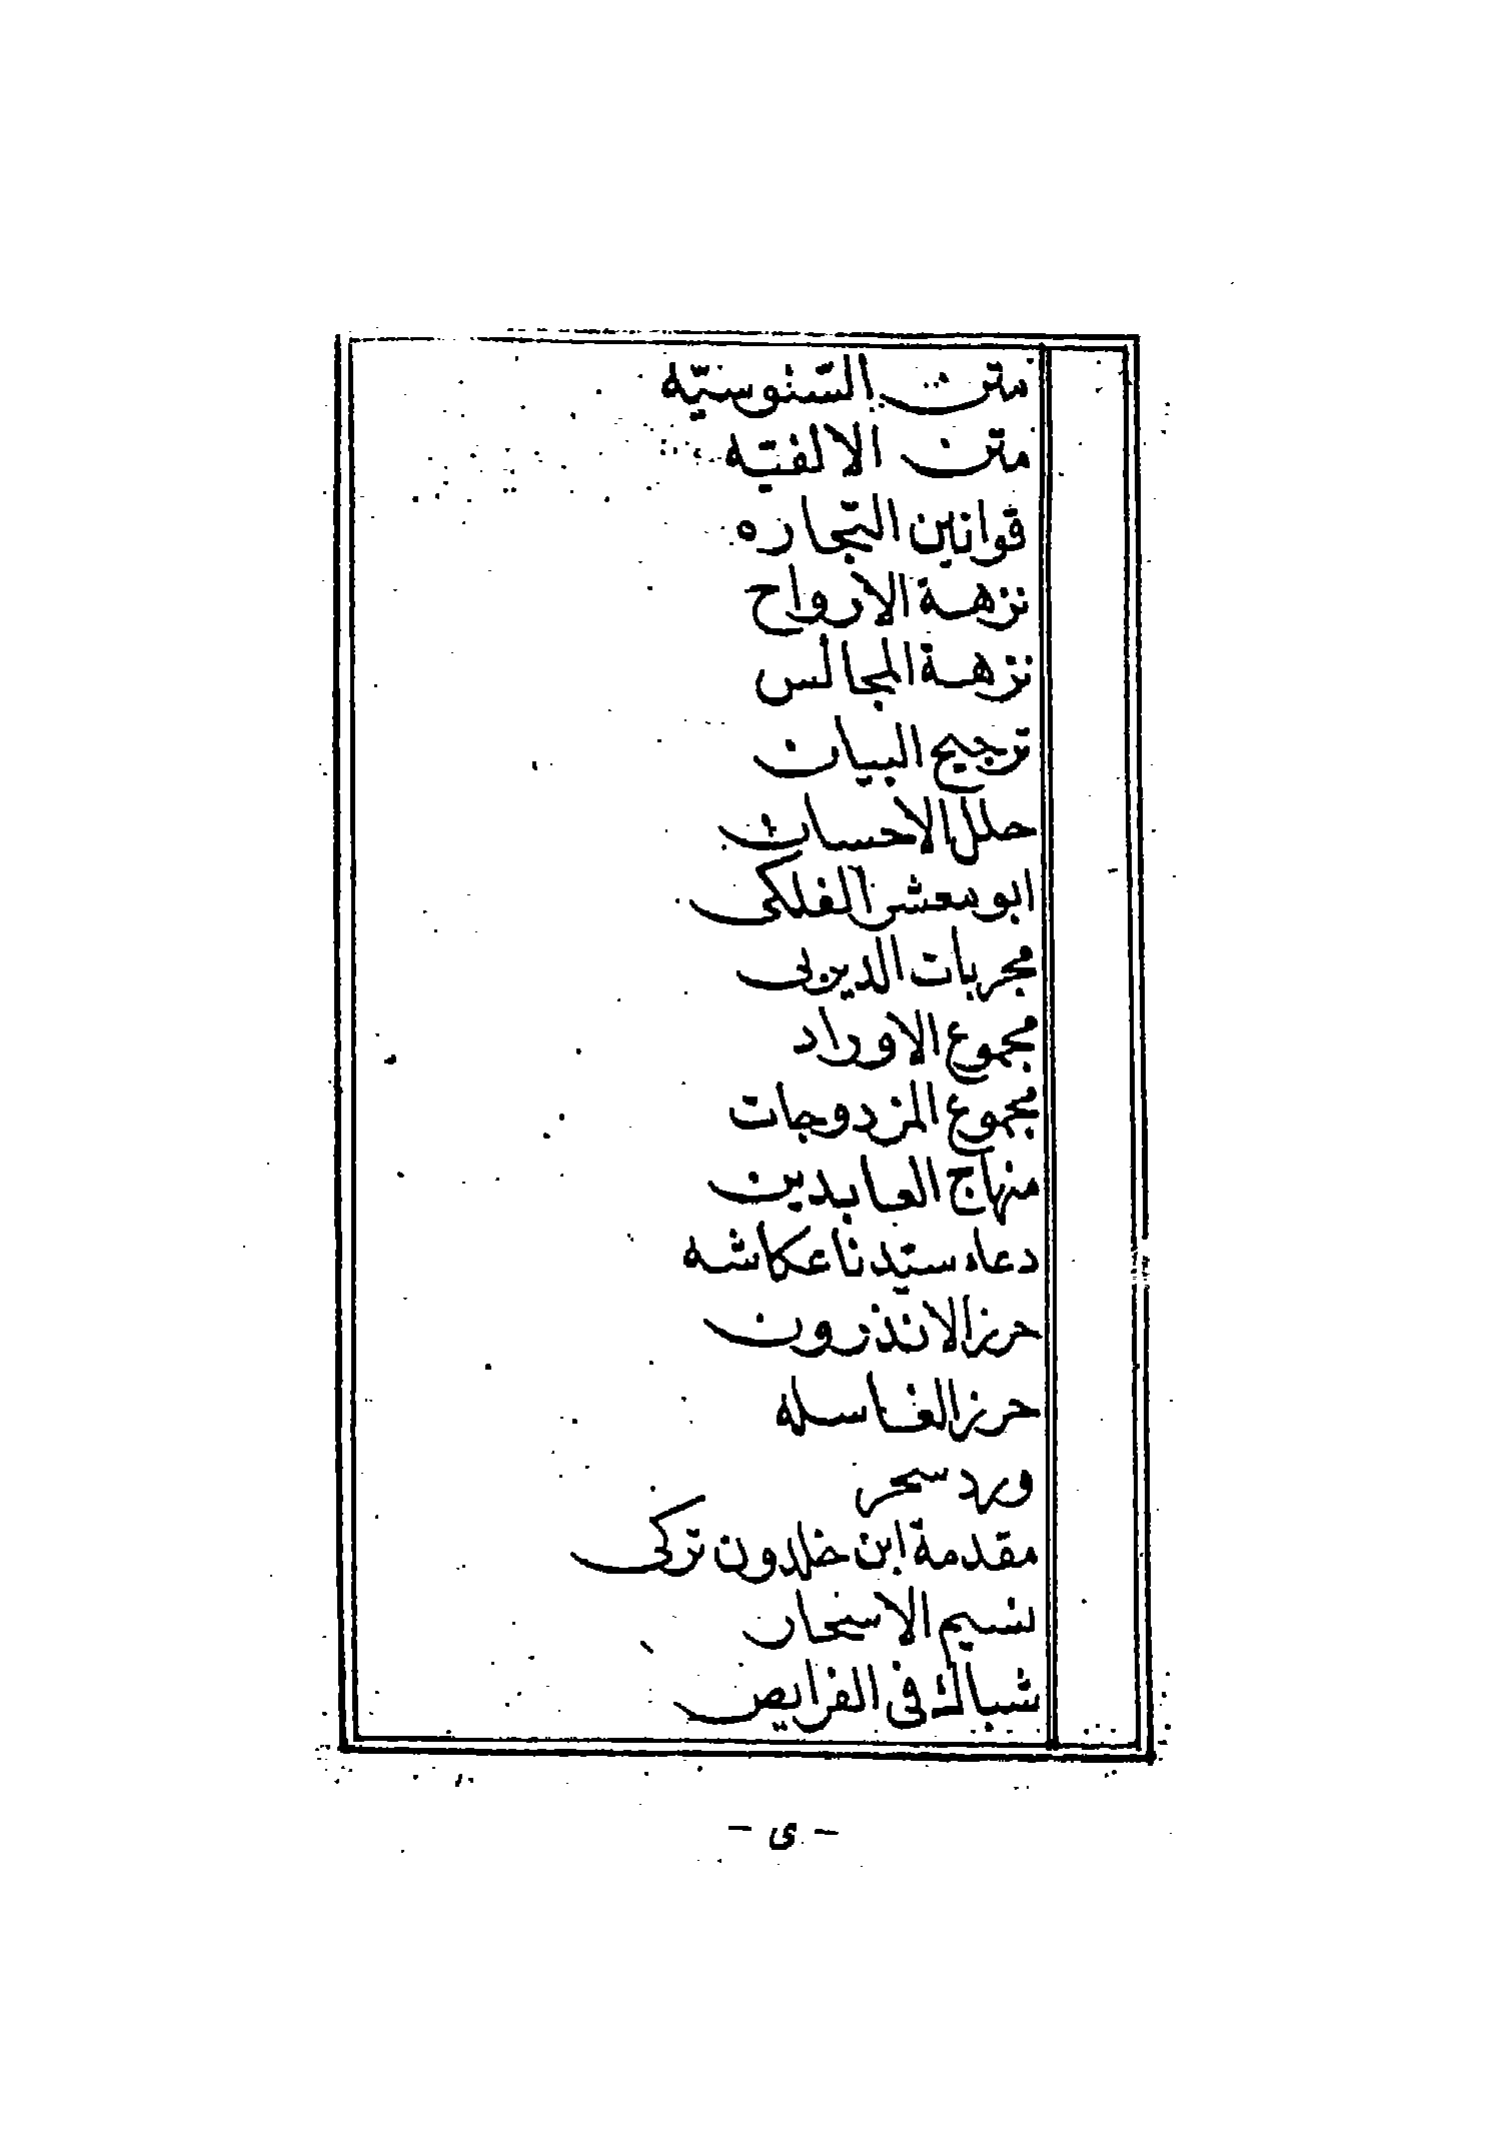 متن السّنوسيّه
متن الالفيّه
قوانين التجاره
نزهة الارواح
نزهة المجالس
ترجيح البيان
حلل الاحسان
ابو معشر الفلكى
مجربات الديربى
مجموع الاوراد
مجموع المزدوجات
منهاج العابدين
دعاء سيّدنا عكاشه
حرز الاندرون
حرز الغاسله
ورد سحر
مقدمة ابن خلدون تركى
نسيم الاسحار
شباك فى الفرايض
- ى -